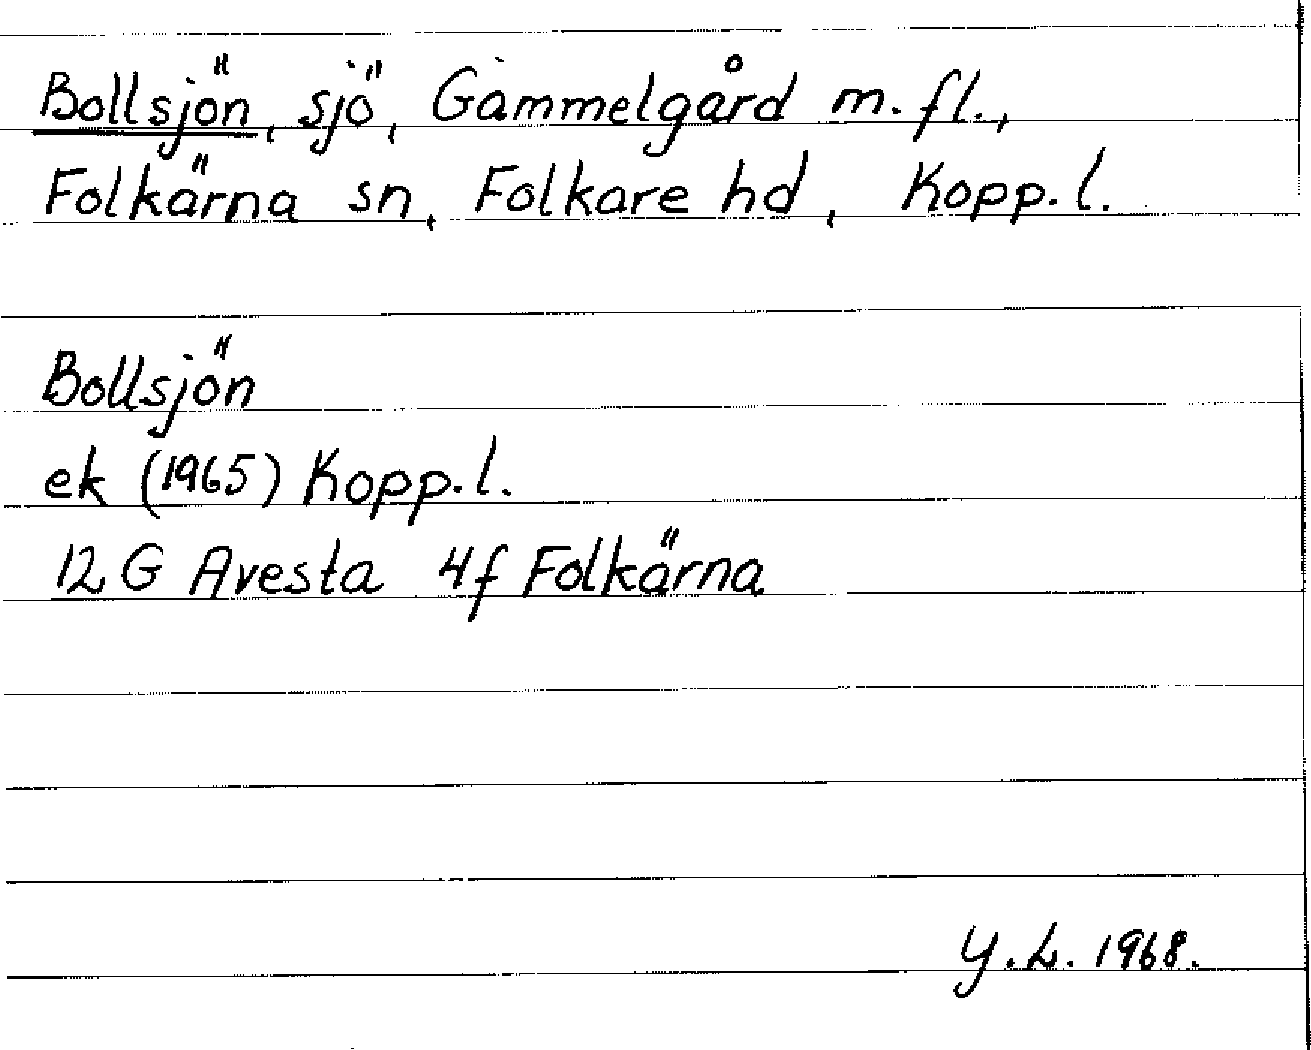 Bollsjön, sjö, Gammelgård m.fl.,
Folkärna sn, Folkare hd, Kopp.l.
Bollsjön
ek (1965) Kopp.l.
12 G Avesta 4f Folkärna
Y.L. 1968.